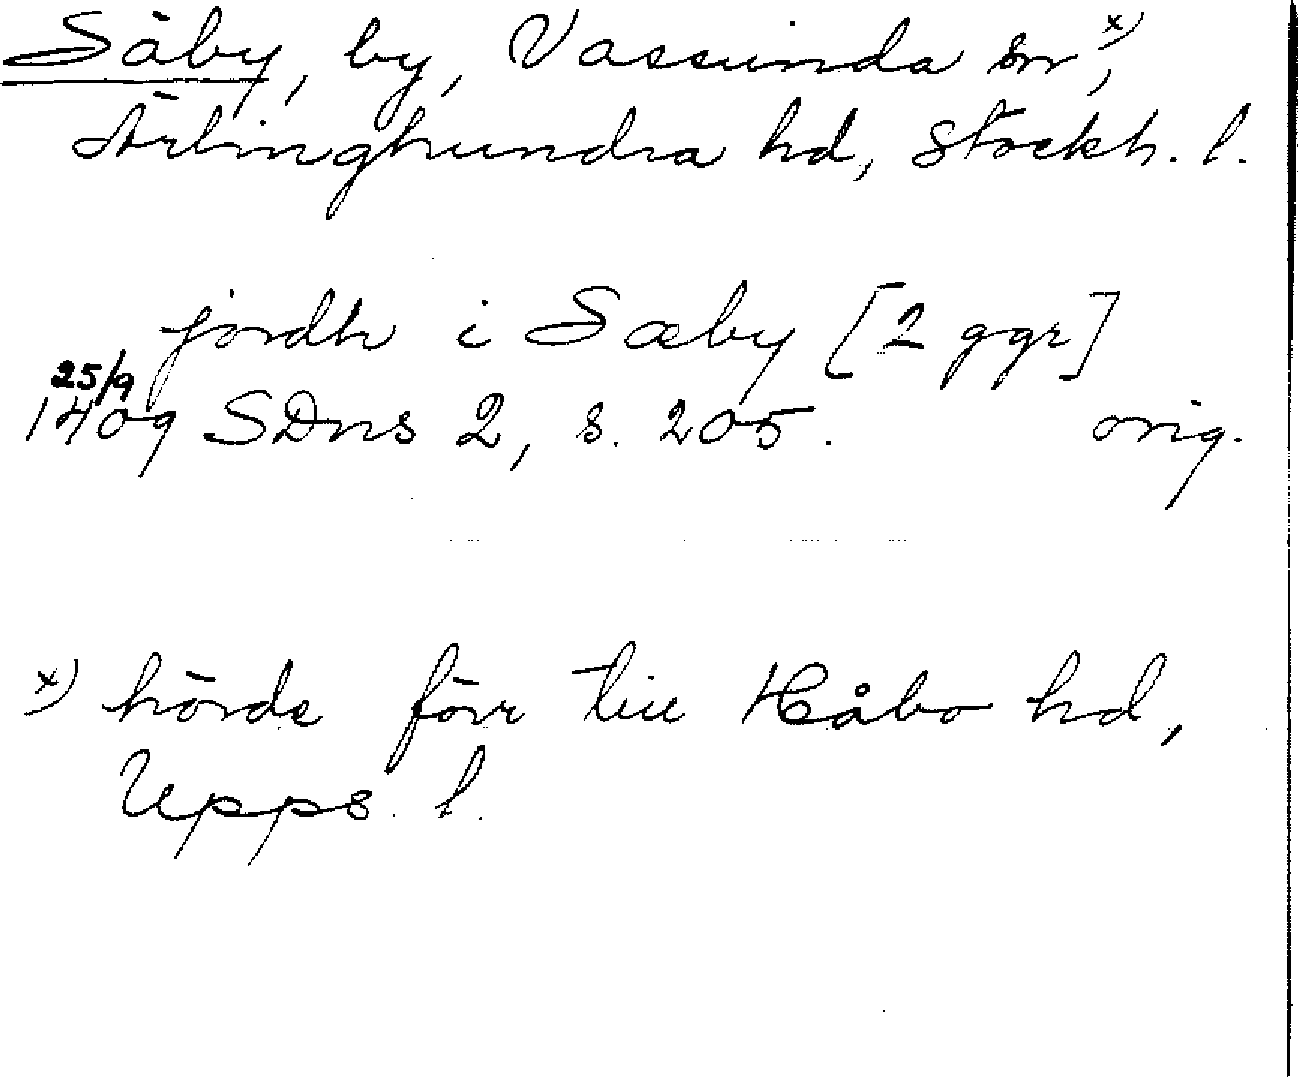 Säby, by, Vassunda sn x),
Ärlinghundra hd, Stockh. l.
jordh i Sæby [2 ggr]
25/9
1409 SDns 2, s. 205. orig.
x) hörde förr till Håbo hd,
Upps. l.